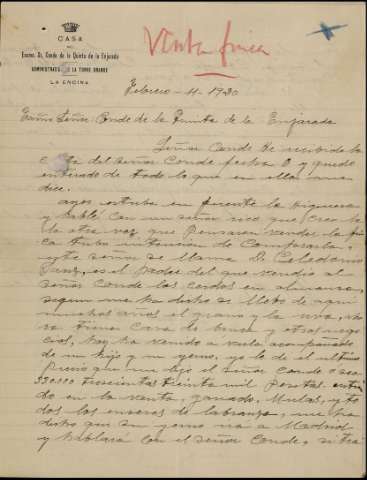 CASA
DEL
Excmo. Sr. Conde de la Quinta de la Enjarada
ADMINISTRACIÓN DE LA TORRE GRANDE
LA ENCINA
Venta finca
Febrero - 11 - 1920
Exmo Señor: Conde de la Quinta de la Enjarada
Señor Conde He recibido la
del señor Conde fecha 9 y quedo
enterado de todo lo que en ella me
dice.
ayer estube en fuente la higuera
y hablé con un señor rico que creo
la otra vez que pensaron vender la fin
ca tubo intencion de Comprarla,
este señor se llama D. Celedonio
es el padre del que vendio al
señor Conde los cerdos en almansa,
segun me ha dicho se llebó de aqui
muchos años el grano y la uva, aho
ra tiene Casa de banca y otros nego
cios, hoy ha venido a verla acompañado
de un hijo y un yerno, yo le dí el ultimo
Precio que me dijo el señor Conde o sea
330000 trescientas treinta mil Pesetas, entra
do en la venta, ganado, Mulas, y to
dos los enseres de labranza, me ha
dicho que su yerno va a Madrid
y hablará con el señor Conde, si tra